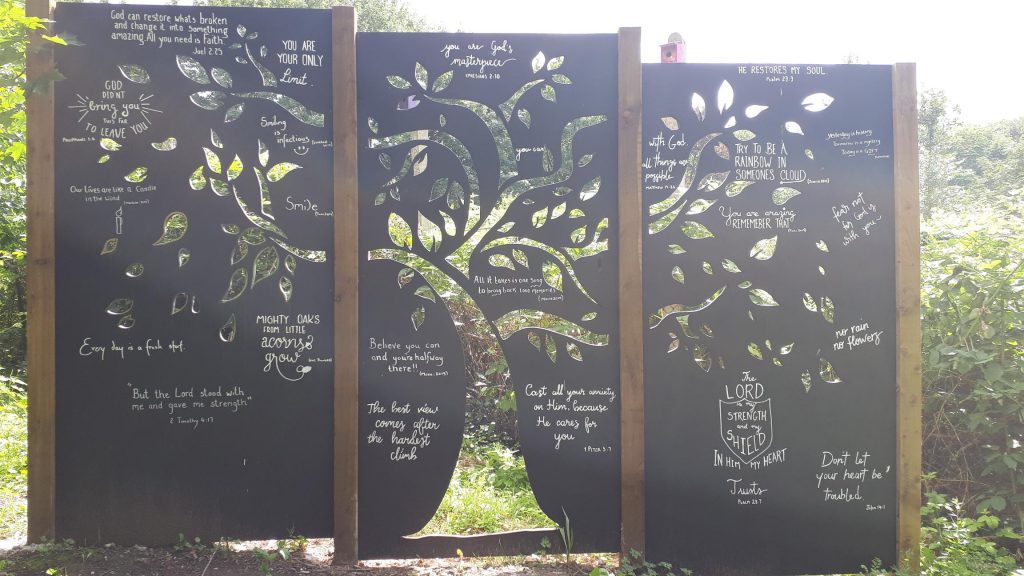 God can restore whats broken
and change it into something
amazing. All you need is Faith
Joel 2:25
YOU ARE
YOUR ONLY
Limit.
GOD
DIDN'T
bring you
THIS FAR
TO LEAVE YOU
Smiling
is
infectious
Our Lives are Like a Candle
in the Wind
Smile
MIGHTY OAKS
FROM LITTLE
acorns
grow
Every day is a fresh start.
"But the Lord stood with
me and gave me strength"
2 Timothy 4:17
you are God's
masterpiece
EPHESIANS 2:10
you can
All it takes is one song
to bring back 1000 memories
Believe you can
and you're halfway
there!!
The best view
comes after
the hardest
climb
Cast all your anxiety
on Him, because
He cares for
you
1 PETER 5:7
HE RESTORES MY SOUL
Psalm 23:3
with God
all things are
possible
TRY TO BE A
RAINBOW IN
SOMEONES CLOUD
Yesterday is history
Tomorrow is a mystery
Today is a GIFT
You are amazing
REMEMEBER THAT
fear not
for I am
with you
no rain
no flowers
The
LORD
is my
STRENGTH
and my
SHIELD
IN HIM MY HEART
Trusts
PSALM 28:7
Don't let
your heart be
troubled.
John 14:1